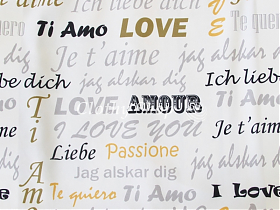 Te quiero Ti Amo LOVE Te qu
Je t'aime jag alskar
liebe dich jag alskar dig Ich liebe
LOVE AMOUR Ti Amo
I LOVE YOU Je t'ai
Liebe Passione jag alskar dig
Jag alskar dig
Te quiero Ti Amo I Love
Ti Am
VE